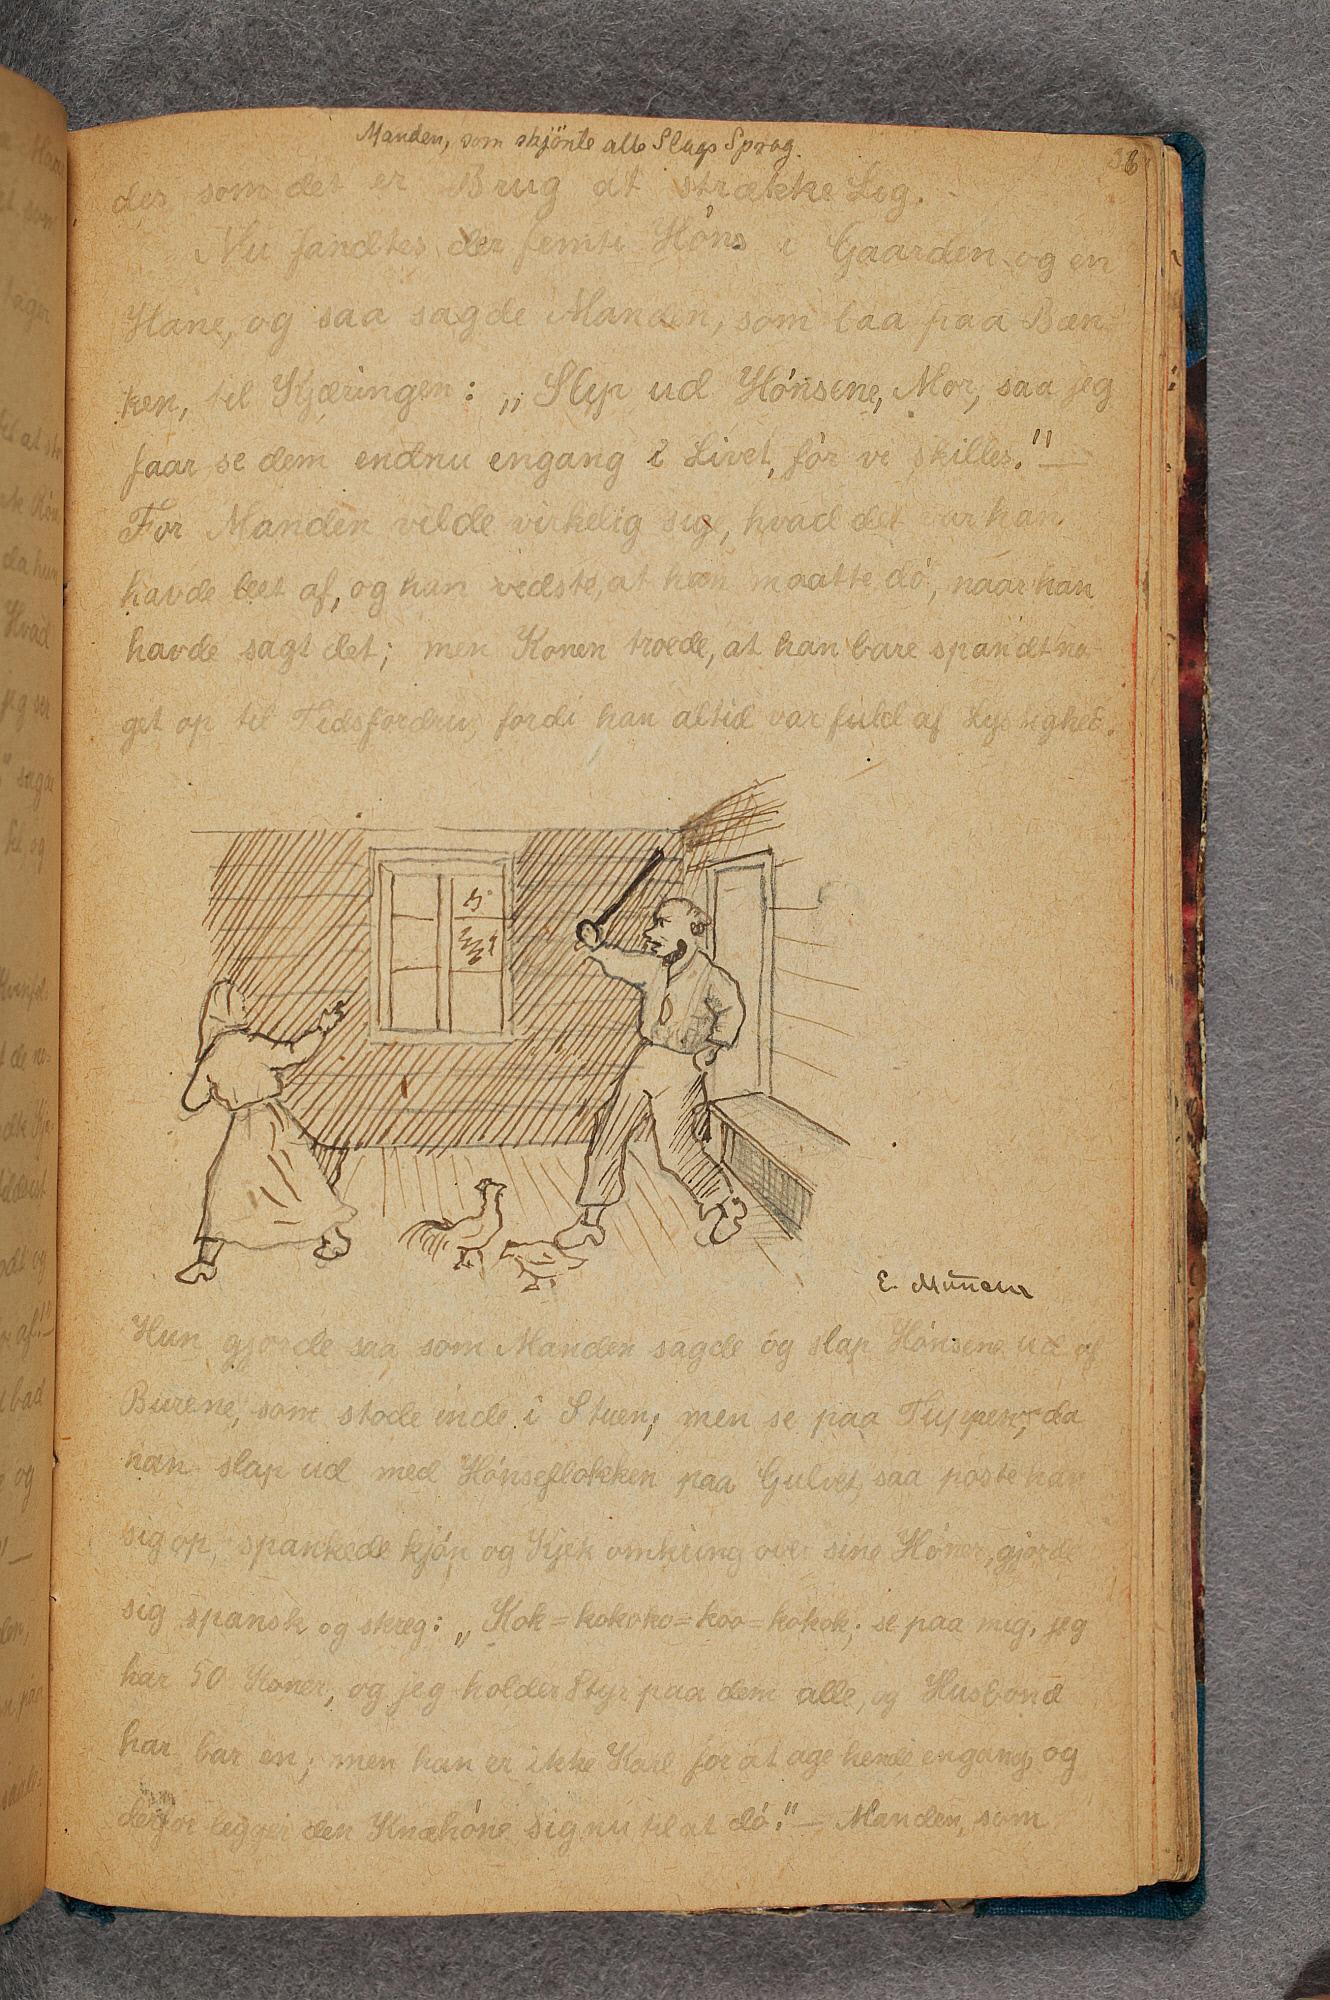 Manden, som skjönte alle Slags Sprog.
38
der som det er Brug at strække Lig.
Nu fandtes der femti Höns i Gaarden og en
Hane, og saa sagde Manden, som laa paa Bæn-
ken, til Kjæringen: „Slip ud Hönsene, Mor, saa jeg
faar se dem endnu engang i Livet, för vi skilles." —
For Manden vilde virkelig sige, hvad det var han
havde leet af, og han vidste, at han maatte dö, naar han
havde sagt det; men Konen troede, at han bare spandt no-
get op til Tidsfordriv, fordi han altid var fuld af Lystighet.
E. Münch
Hun gjorde saa som Manden sagde og slap Hönsene ud af
Burene, som stode inde i Stuen; men se paa Tuppen, da
han slap ud med Hönseflokken paa Gulvet, saa poste han
sig op, spankede kjön og Kjek omkring over sine Höner, gjorde
sig spansk og skreg: „Kok=kokoko=koo=kokok; se paa mig, jeg
har 50 Koner, og jeg holder Styr paa dem alle, og Husbond
har bar en; men han er ikke Karl for at age hende engang, og
derfor legger den Knæhöne sig nu til at dö." — Manden, som